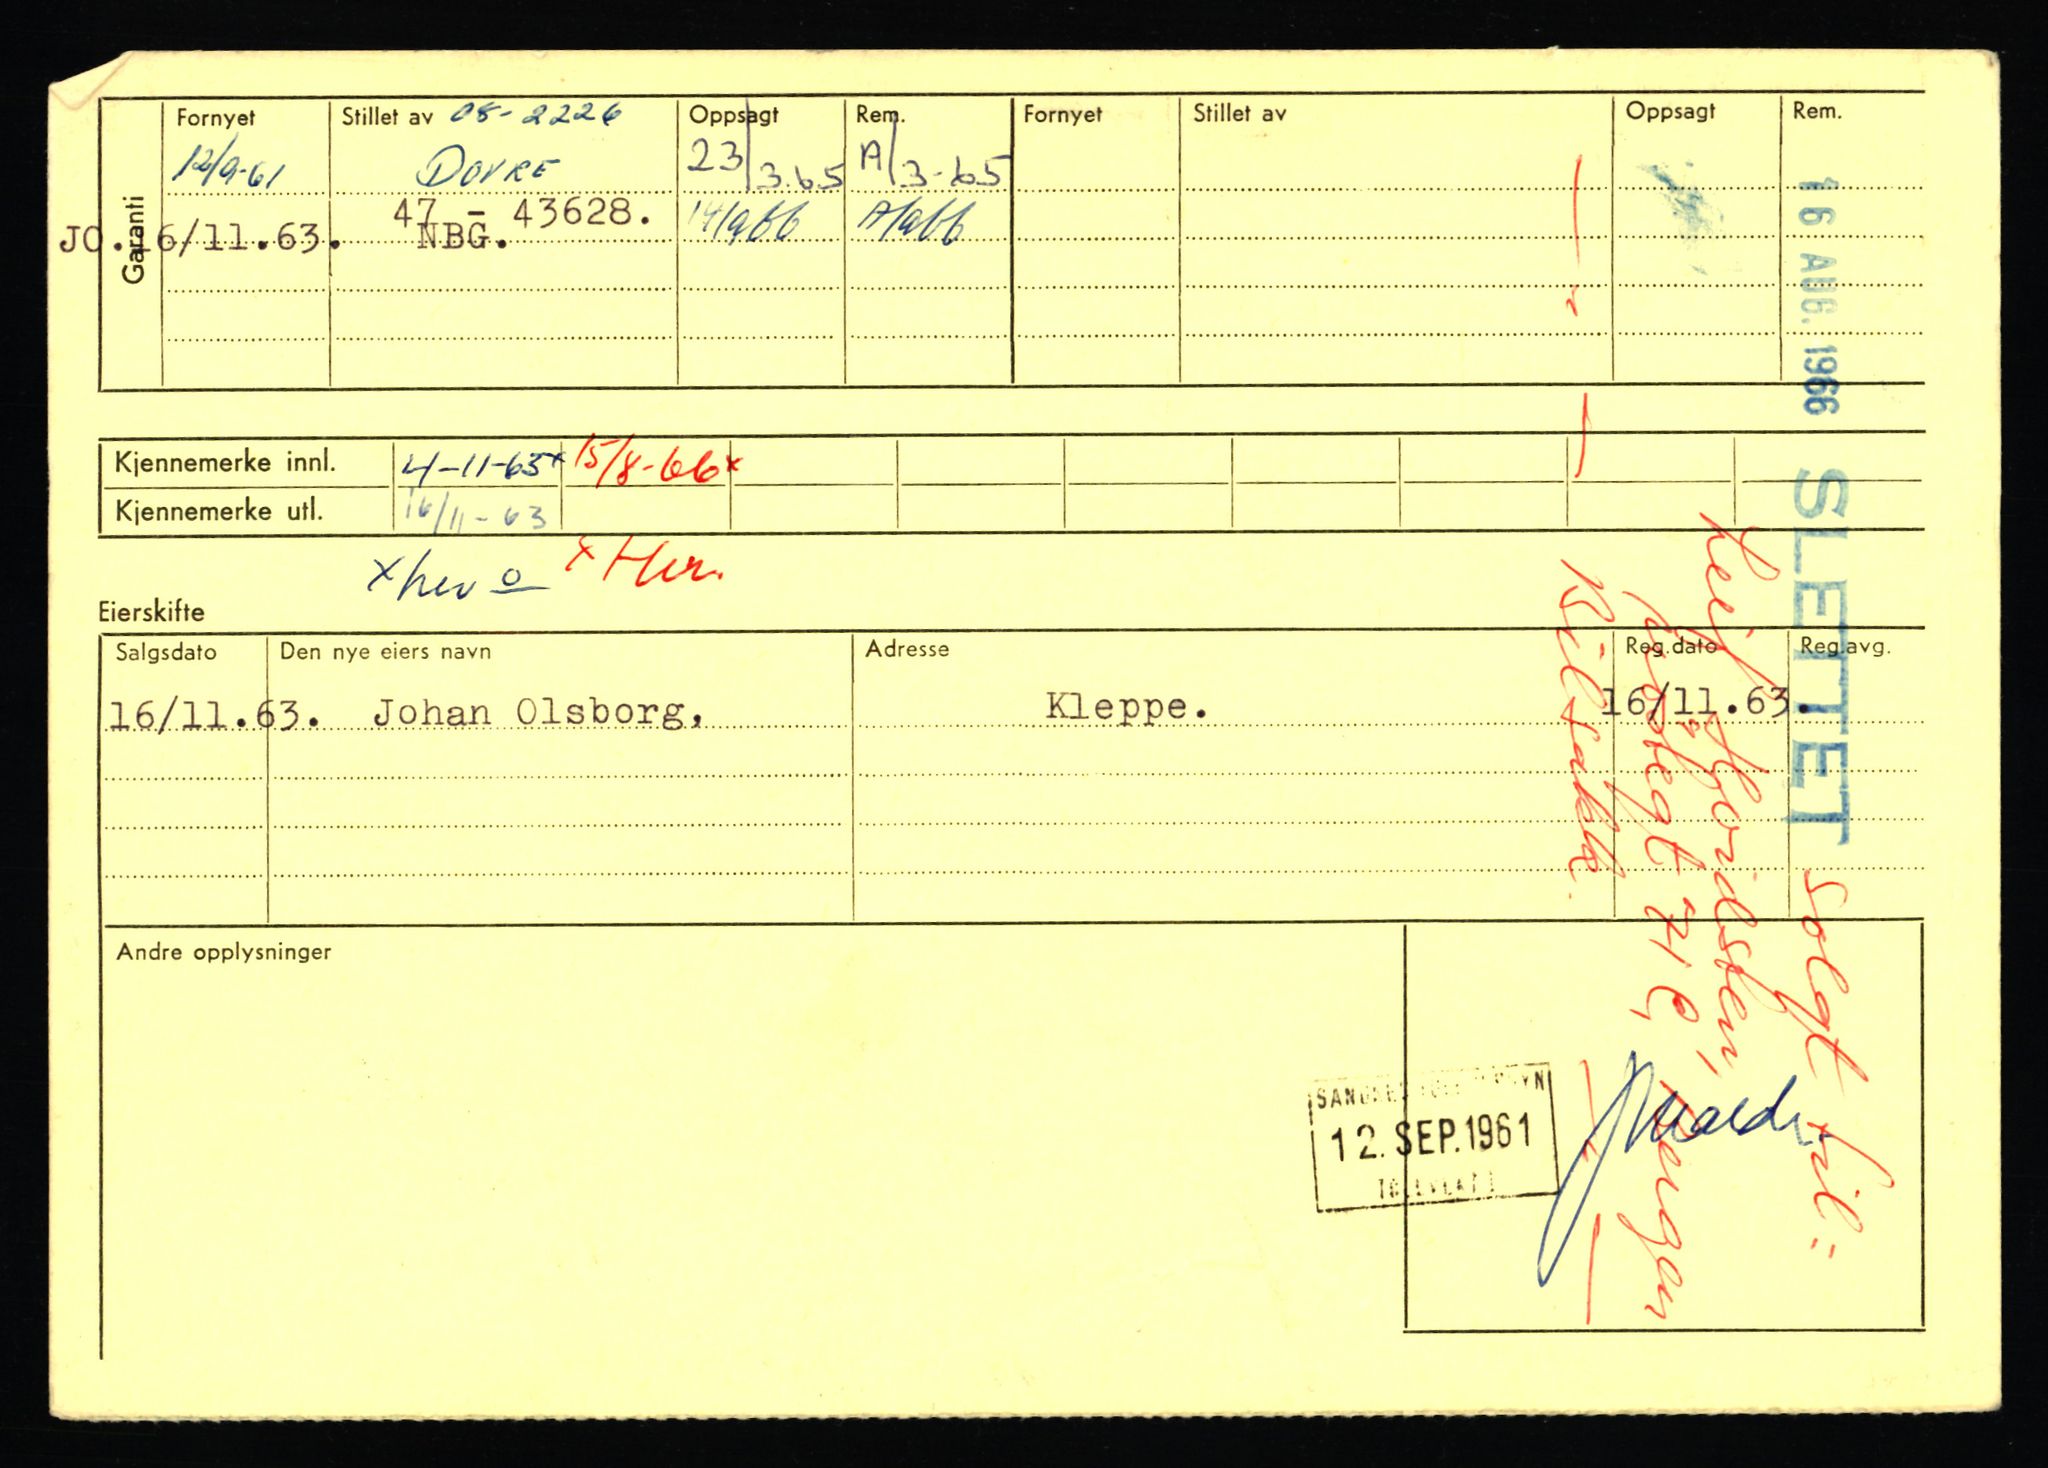 Fornyet Stillet av 08-2226 Oppsagt Rem. Fornyet Stillet av Oppsagt Rem.
12/9-61 DOVRE 23/3.65 A/3-65
47 - 43628. 14/966 A/966
JO. 16/11.63. NBG.
Garanti
16 AUG. 1966
Kjennemerke innl. 4-11-63x 15/8-66x
Kjennemerke utl. 16/11-63
x her x Her.
SLETTET
Solgt til:
Leif Havildsen,
Bergen
Bilsakk.
Eierskifte
Salgsdato Den nye eiers navn Adresse Reg.dato Reg.avg.
16/11.63. Johan Olsborg, Kleppe. 16/11.63.
Andre opplysninger
12. SEP. 1961